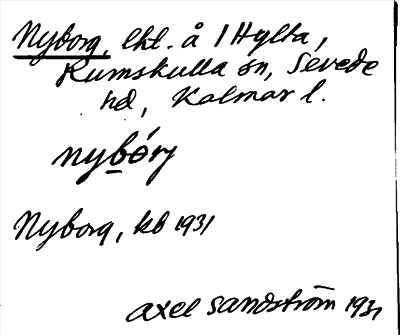 Nyborg, lht. å 1 Hylta,
Rumskulla sn, Sevede
hd, Kalmar l.
nybórj
Nyborg, kb 1931
Axel Sandström 1931